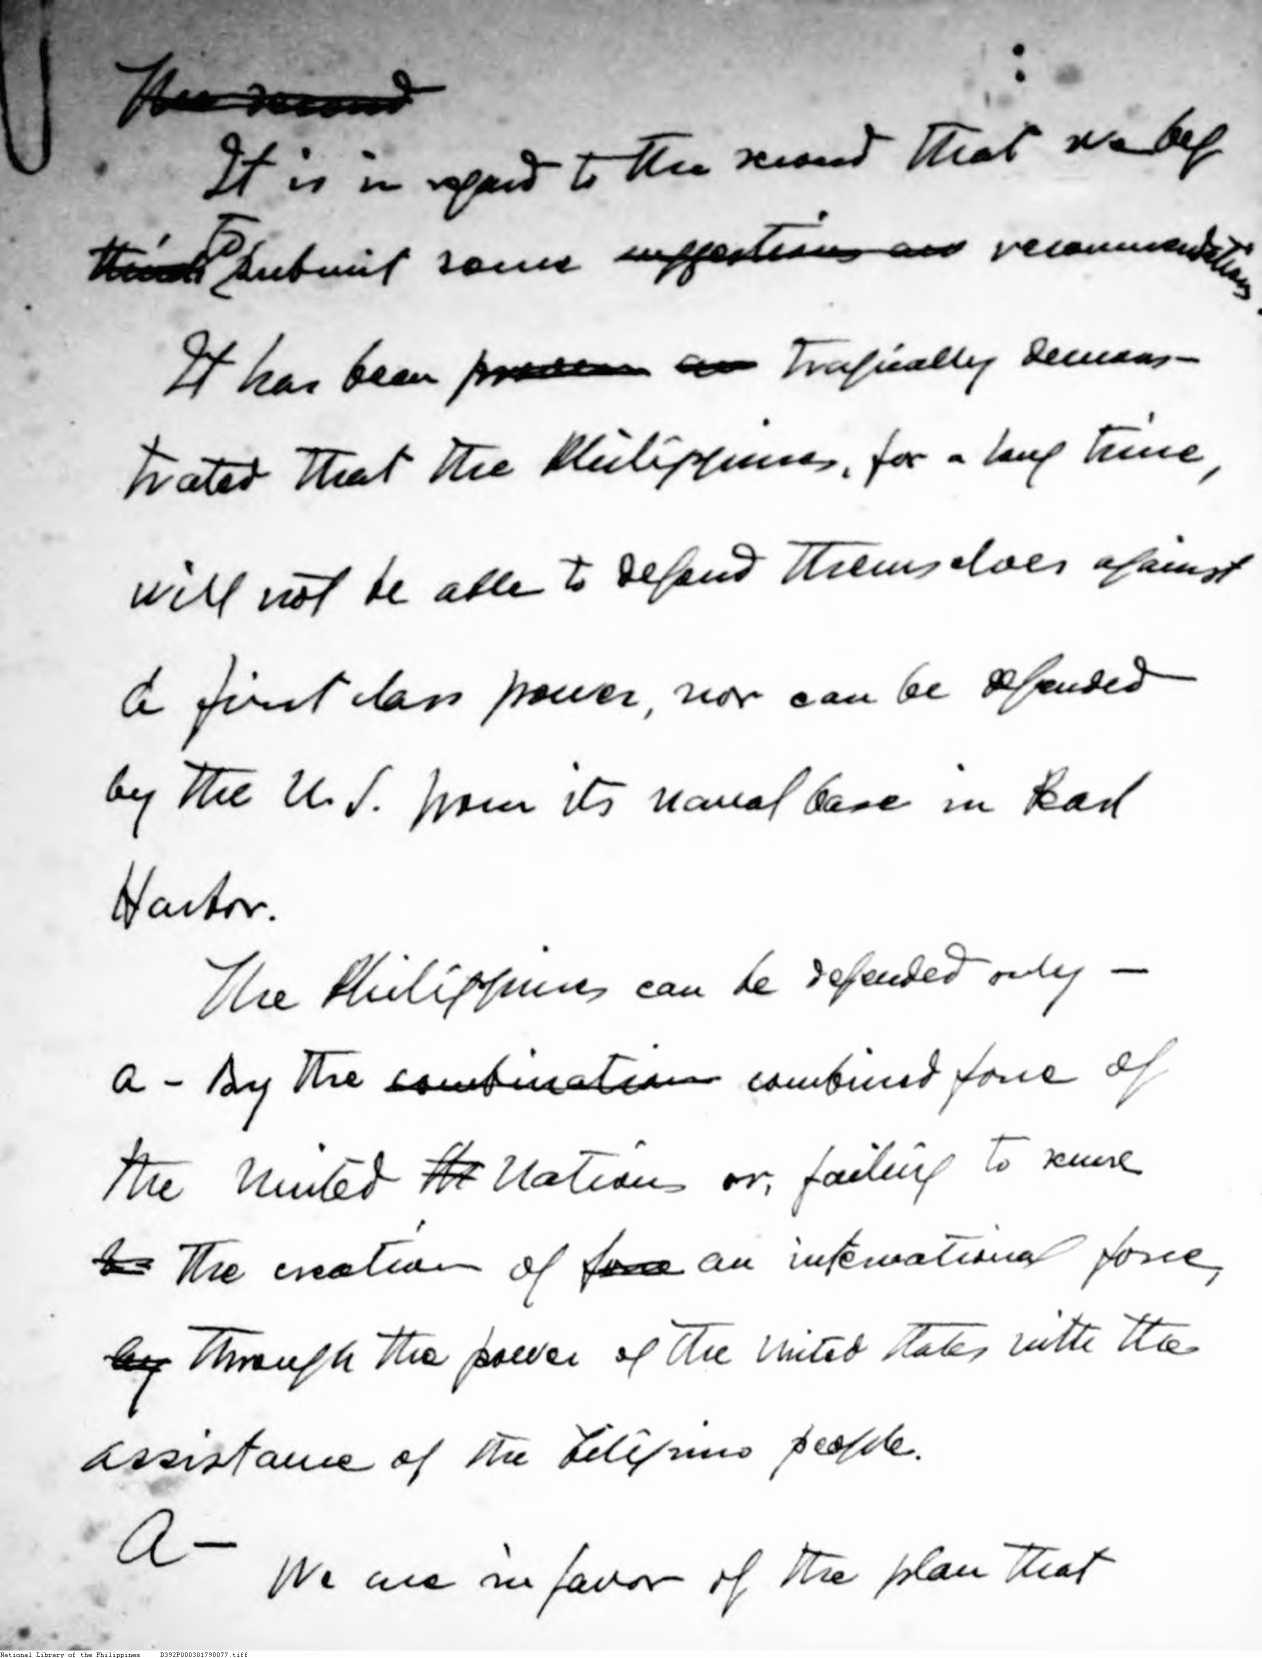 The second
It is in regard to the second that we beg
think to submit some suggestions and recommendations.
It has been proven and tragically demons-
trated that the Philippines, for a long time,
will not be able to defend themselves against
a first class power, nor can be defended
by the U.S. from its naval base in Pearl
Harbor.
The Philippines can be defended only —
a - By the combination combined force of
the United the Nations or, failing to secure
to the creation of force an international force,
by through the power of the United States with the
assistance of the Filipino people.
A —
We are in favor of the plan that
National Library of the Philippines D392P000301790077.tiff